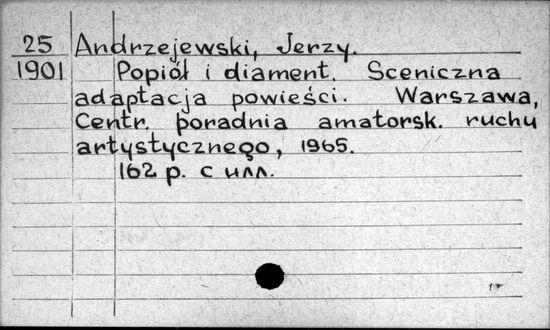 25 Andrzejewski, Jerzy.
1901 Popiół i diament. Sceniczna
adaptacja powieści. Warszawa,
Centr. poradnia amatorsk. ruchu
artystycznego, 1965.
162 p. с илл.